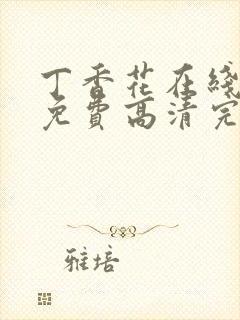 丁香花在线
免费高清完
雅培